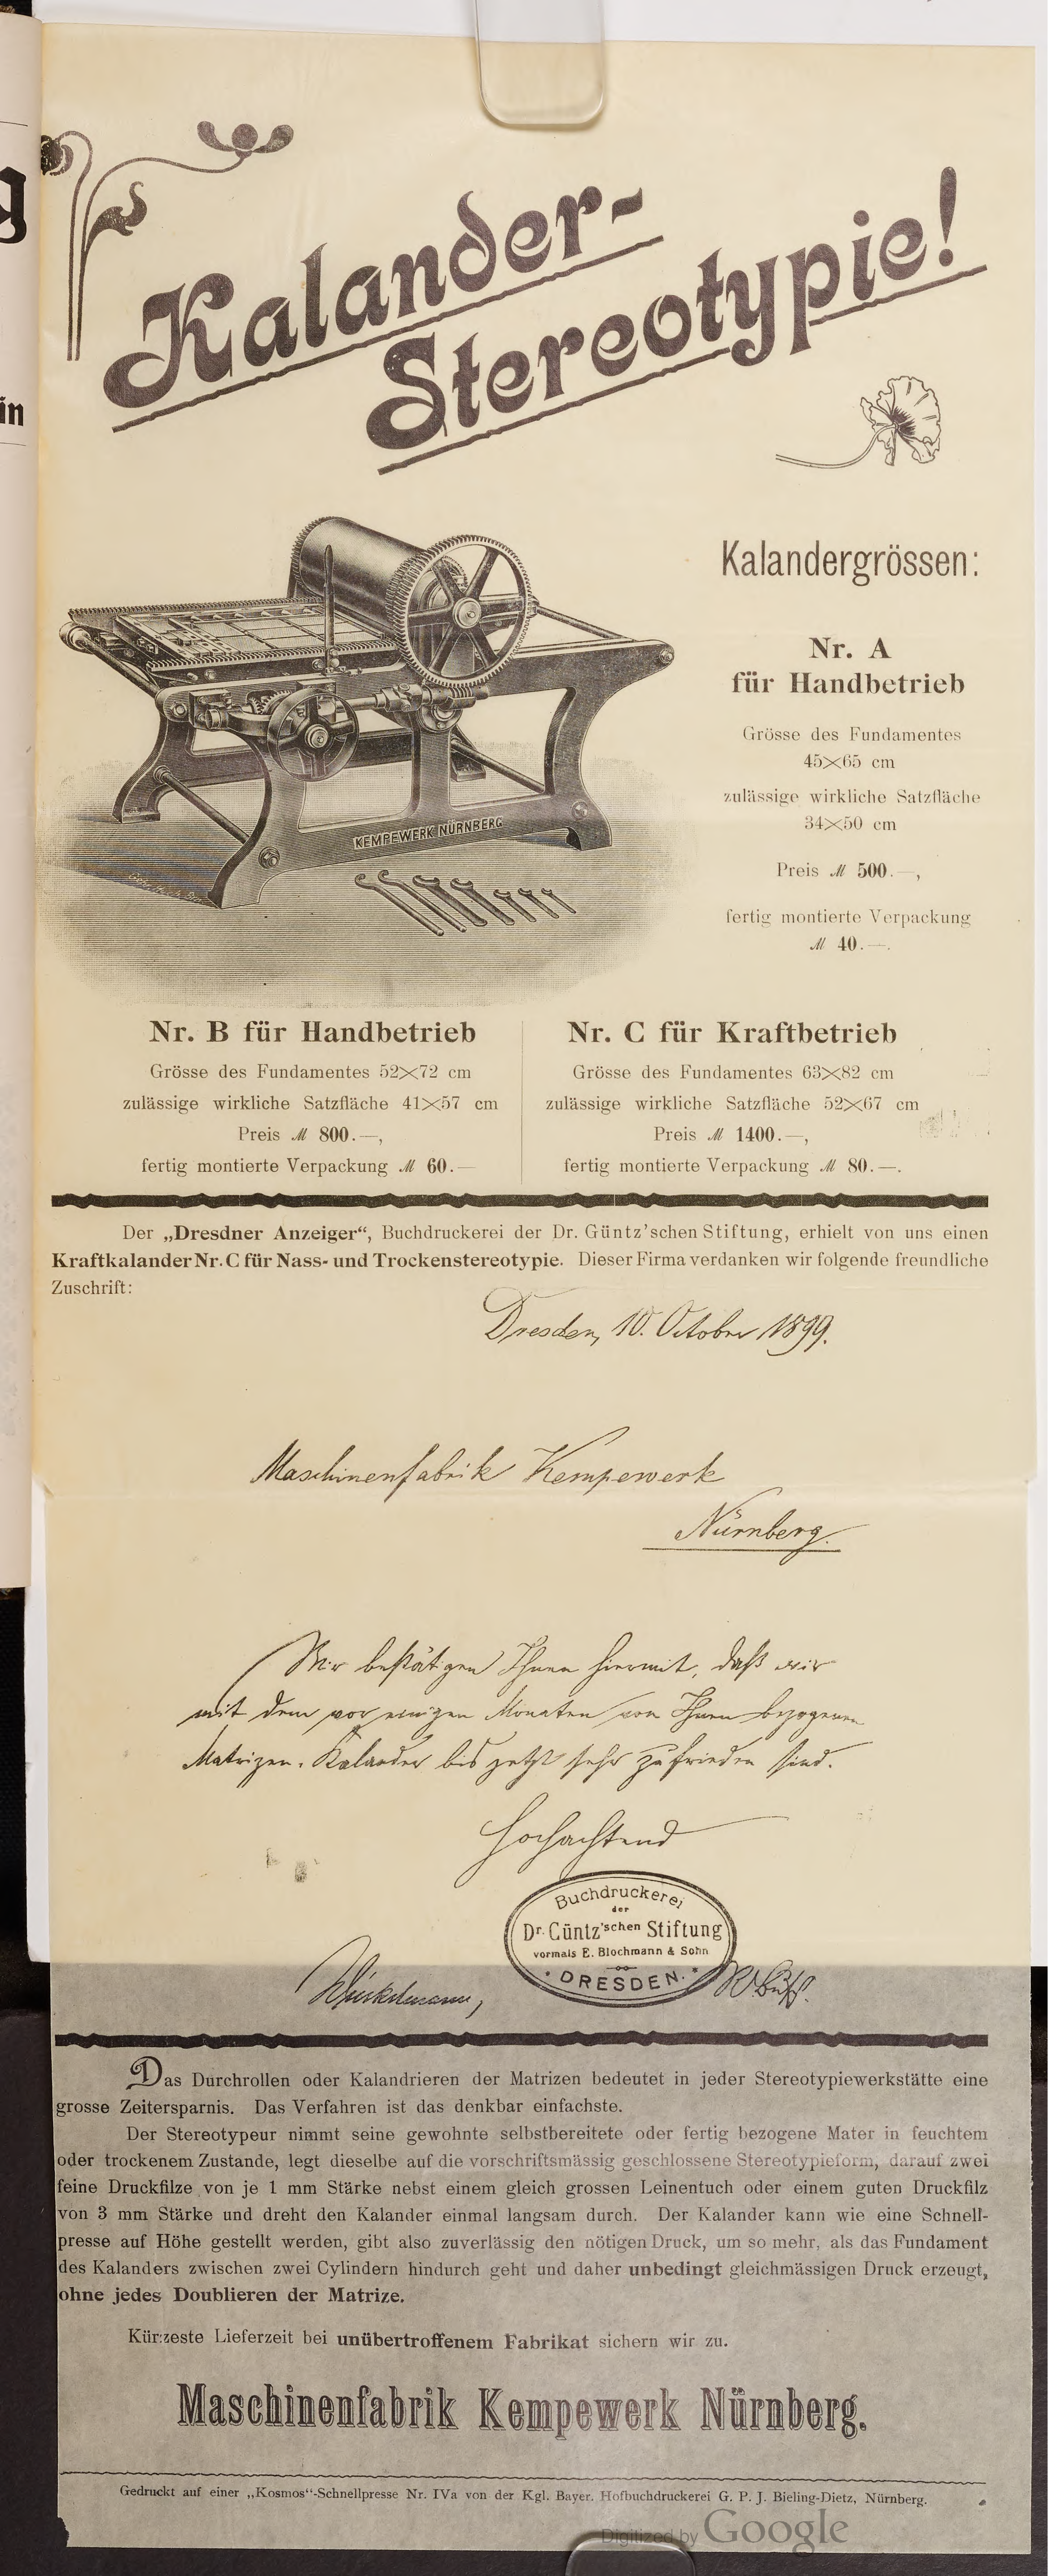 g
in
Kalander-
Stereotypie!
KEMPEWERK NÜRNBERG
Kalandergrössen:
Nr. A
für Handbetrieb
Grösse des Fundamentes
45×65 cm
zulässige wirkliche Satzfläche
34×50 cm
Preis ℳ 500.—,
fertig montierte Verpackung
ℳ 40.—.
Nr. B für Handbetrieb
Grösse des Fundamentes 52×72 cm
zulässige wirkliche Satzfläche 41×57 cm
Preis ℳ 800.—,
fertig montierte Verpackung ℳ 60.—
Nr. C für Kraftbetrieb
Grösse des Fundamentes 63×82 cm
zulässige wirkliche Satzfläche 52×67 cm
Preis ℳ 1400.—,
fertig montierte Verpackung ℳ 80.—.
Der „Dresdner Anzeiger“, Buchdruckerei der Dr. Güntz'schen Stiftung, erhielt von uns einen
Kraftkalander Nr. C für Nass- und Trockenstereotypie. Dieser Firma verdanken wir folgende freundliche
Zuschrift:
Dresden, 10. October 1899.
Maschinenfabrik Kempewerk
Nürnberg.
Wir bestätigen Ihnen hiermit, daß wir
mit dem vor einigen Monaten von Ihnen bezogenen
Matrizen-Kalander bis jetzt sehr zufrieden sind.
Hochachtend
Buchdruckerei
der
Dr. Güntz'schen Stiftung
vormals E. Blochmann & Sohn
DRESDEN.
Winkelmann,
Das Durchrollen oder Kalandrieren der Matrizen bedeutet in jeder Stereotypiewerkstätte eine
grosse Zeitersparnis. Das Verfahren ist das denkbar einfachste.
Der Stereotypeur nimmt seine gewohnte selbstbereitete oder fertig bezogene Mater in feuchtem
oder trockenem Zustande, legt dieselbe auf die vorschriftsmässig geschlossene Stereotypieform, darauf zwei
feine Druckfilze von je 1 mm Stärke nebst einem gleich grossen Leinentuch oder einem guten Druckfilz
von 3 mm Stärke und dreht den Kalander einmal langsam durch. Der Kalander kann wie eine Schnell-
presse auf Höhe gestellt werden, gibt also zuverlässig den nötigen Druck, um so mehr, als das Fundament
des Kalanders zwischen zwei Cylindern hindurch geht und daher unbedingt gleichmässigen Druck erzeugt,
ohne jedes Doublieren der Matrize.
Kürzeste Lieferzeit bei unübertroffenem Fabrikat sichern wir zu.
Maschinenfabrik Kempewerk Nürnberg.
Gedruckt auf einer „Kosmos“-Schnellpresse Nr. IVa von der Kgl. Bayer. Hofbuchdruckerei G. P. J. Bieling-Dietz, Nürnberg.
Digitized by Google